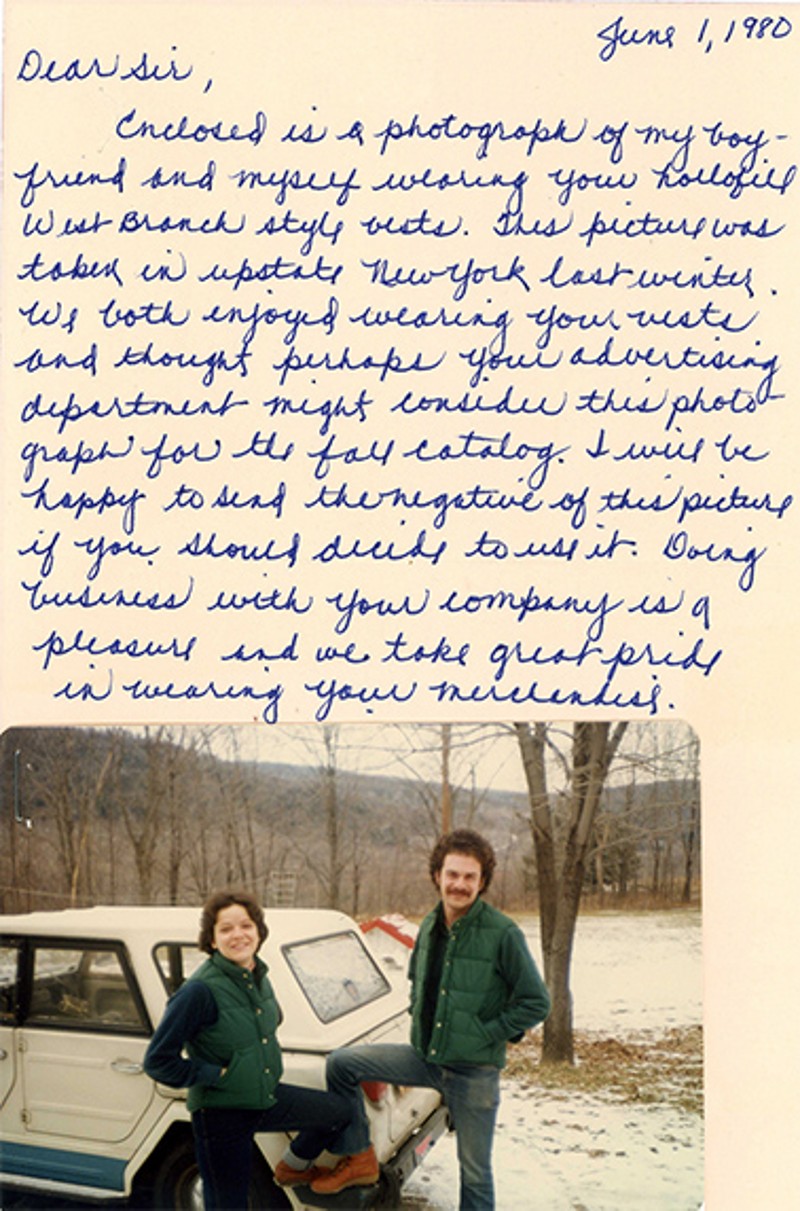 June 1, 1980
Dear Sir,
Enclosed is a photograph of my boy-
friend and myself wearing your hollofill
West Branch style vests. This picture was
taken in upstate New York last winter.
We both enjoyed wearing your vests
and thought perhaps your advertising
department might consider this photo-
graph for the fall catalog. I will be
happy to send the negative of this picture
if you should decide to use it. Doing
business with your company is a
pleasure and we take great pride
in wearing your merchandise.